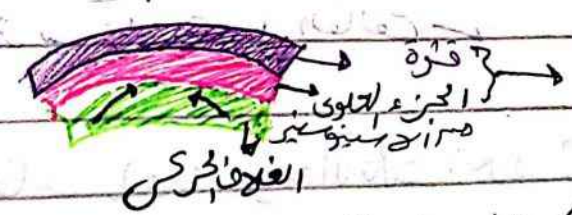 قشرة
الجزء العلوى
من الاسينوسفير
الغلاف الحركى